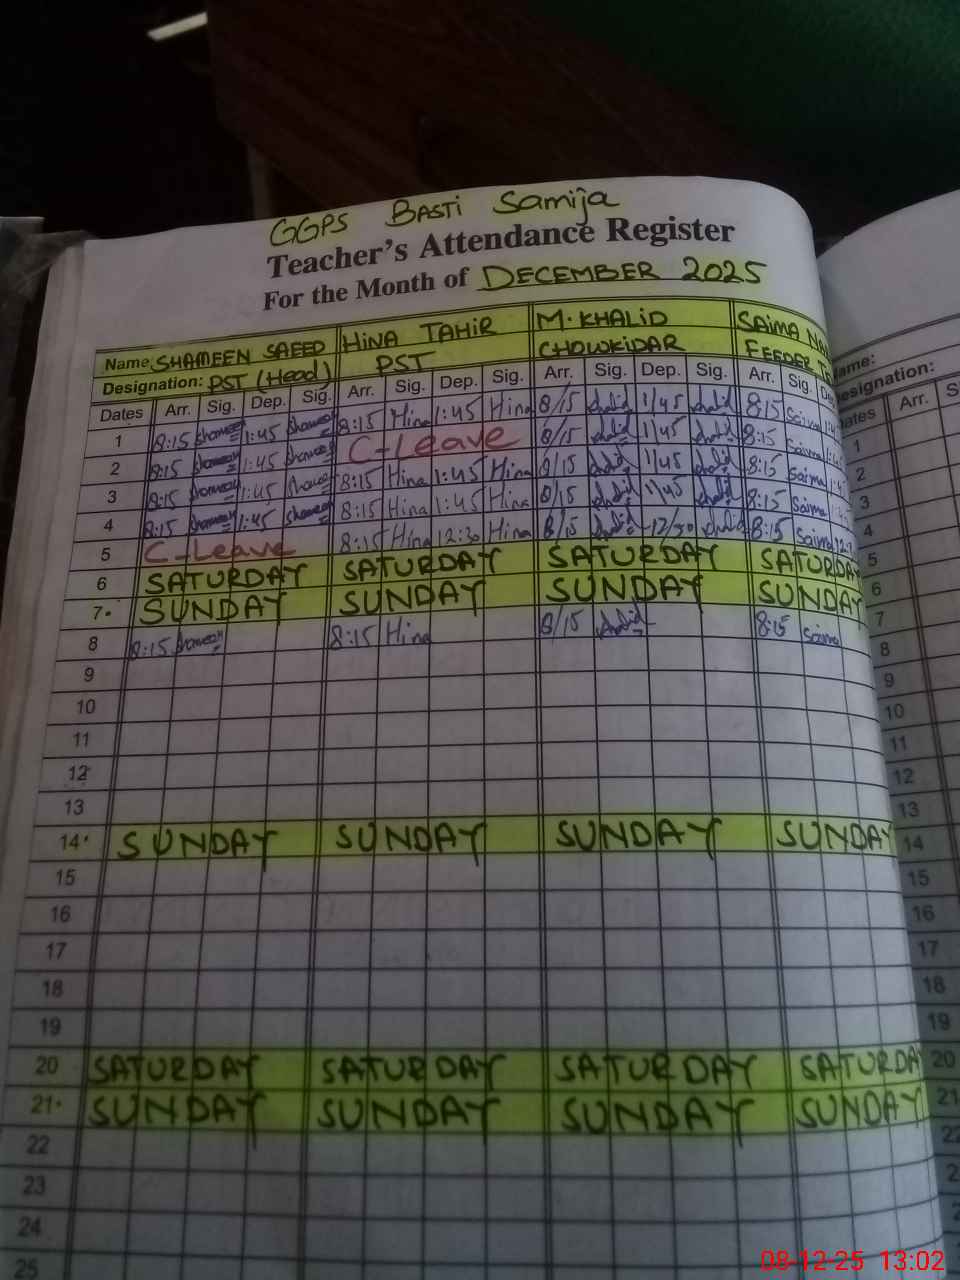 GGPS BASTI Samija
Teacher's Attendance Register
For the Month of DECEMBER 2025
Name: SHAMEEN SAEED HINA TAHIR M. KHALID SAIMA
Designation: PST (Head) PST CHOWKIDAR FEEDER
Dates Arr. Sig. Dep. Sig. Arr. Sig. Dep. Sig. Arr. Sig. Dep. Sig. Arr. Sig.
1 8:15 Shameen 1:45 Shameen 8:15 Hina 1:45 Hina 8/15 Khalid 1/45 Khalid 8:15 Saima
2 8:15 Shameen 1:45 Shameen C-Leave 8/15 Khalid 1/45 Khalid 8:15 Saima
3 8:15 Shameen 1:45 Shameen 8:15 Hina 1:45 Hina 8/15 Khalid 1/45 Khalid 8:15 Saima
4 8:15 Shameen 1:45 Shameen 8:15 Hina 1:45 Hina 8/15 Khalid 1/45 Khalid 8:15 Saima
5 C-Leave 8:15 Hina 12:30 Hina 8/15 Khalid 12/30 Khalid 8:15 Saima
6 SATURDAY SATURDAY SATURDAY SATURDAY
7 SUNDAY SUNDAY SUNDAY SUNDAY
8 8:15 Shameen 8:15 Hina 8/15 Khalid 8:15 Saima
9
10
11
12
13
14 SUNDAY SUNDAY SUNDAY SUNDAY
15
16
17
18
19
20 SATURDAY SATURDAY SATURDAY SATURDAY
21 SUNDAY SUNDAY SUNDAY SUNDAY
22
23
24
25
Name:
Designation:
Dates Arr.
1
2
3
4
5
6
7
8
9
10
11
12
13
14
15
16
17
18
19
20
21
22
08-12-25 13:02